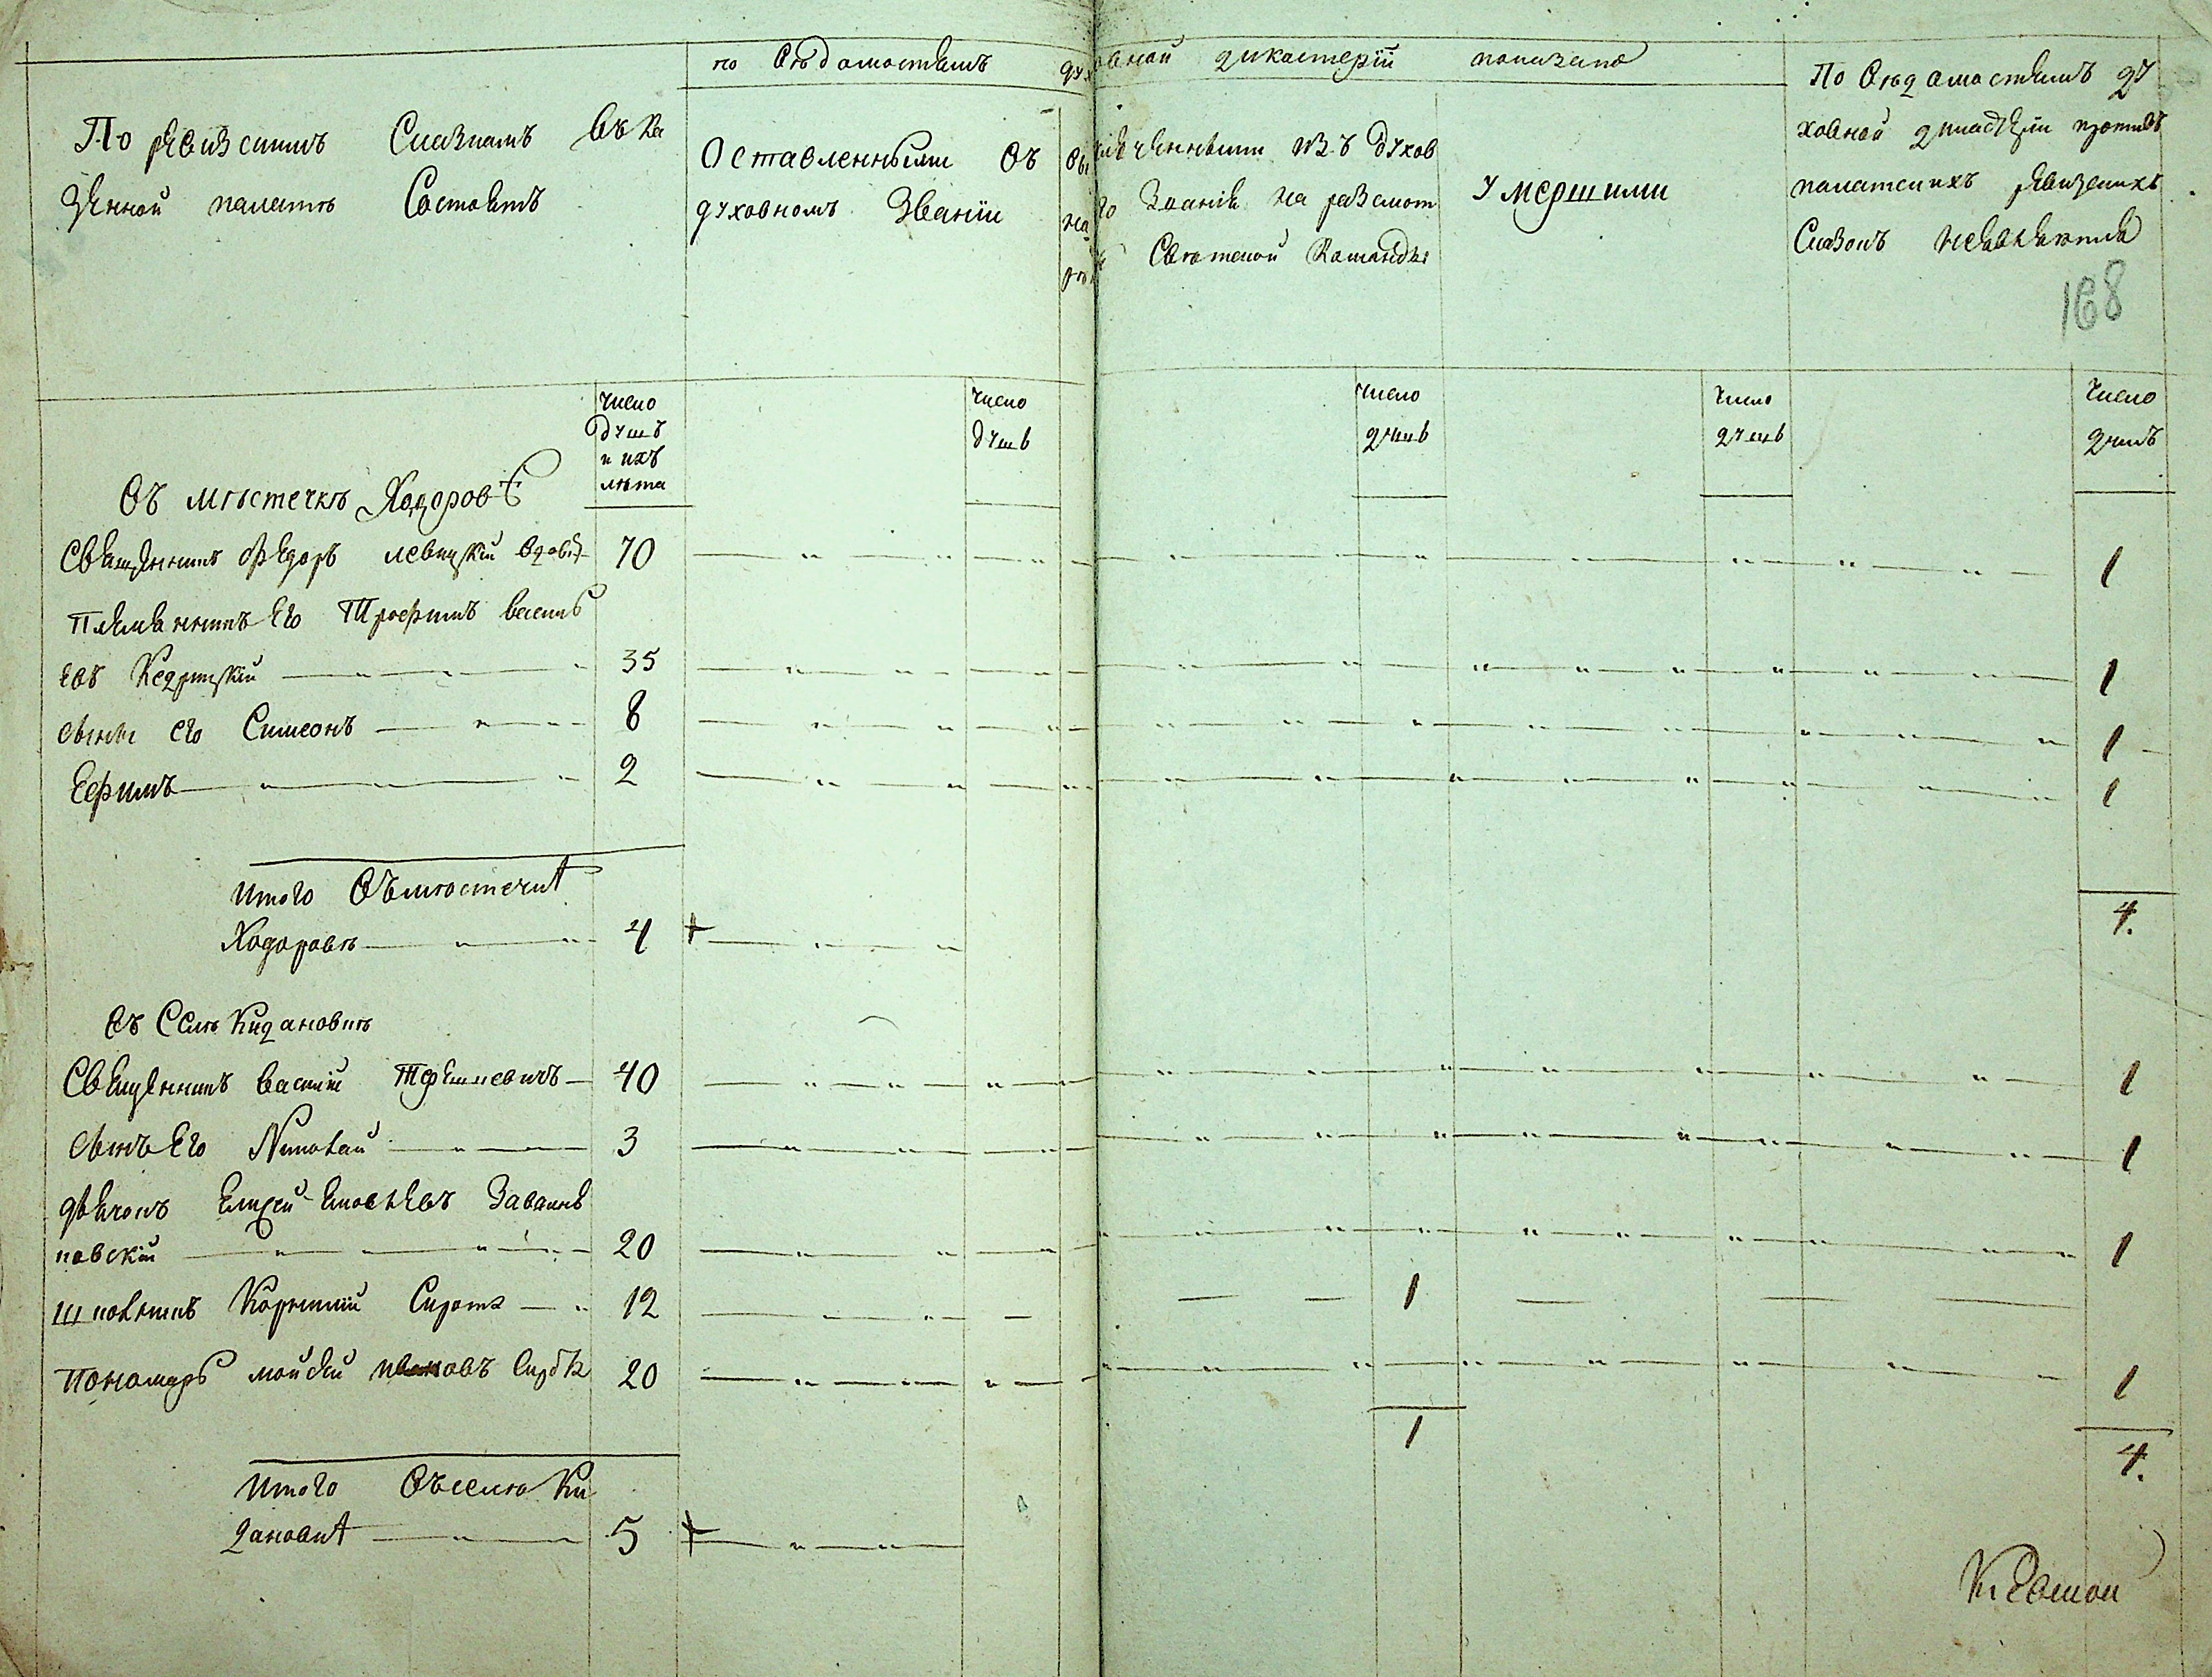 По ревизскимъ Сказкамъ въ Ка
зенной палатѣ Состоитъ
по вѣдомостямъ духовной дикастеріи показано
Оставленными въ
духовномъ Званіи
изъ духов
Званія на разсмот
Свѣтской Команды
Умершими
По вѣдомостямъ ду
ховной дикастеріи противъ
палатскихъ ревизскихъ
Сказокъ неявляются
168
число
душъ
и ихъ
лѣта
число
душъ
число
душъ
число
душъ
число
душъ
Въ мѣстечкѣ Ходоровѣ
Священникъ Федоръ левицкій вдовъ 70 1
Племянникъ Его Трофимъ василь
евъ Кедринскій 35 1
сыны его Симеонъ 8 1
Ефимъ 2 1
Итого Въ мѣстечкѣ
Ходоровѣ 4 + 4.
Въ Селѣ Кидановкѣ
Священникъ василій 40 1
сынъ Его Николай 3 1
дьячокъ
новскій 20 1
школникъ Корнилій Сирота 12 1
пономарь мойсей ивановъ 20 1
1 4.
Итого Въ селѣ Ки
дановкѣ 5 +